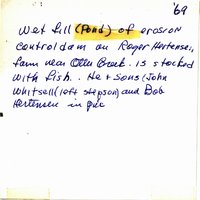 '69
Wet fill (Pond) of erosion
control dam on Roger Hertensen
farm near Otter Creek. is stocked
with fish. He & Sons (John
Whitsell (left stepson) and Bob
Hertensen in pic